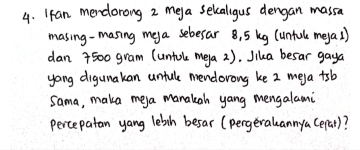 4. Ifan mendorong 2 meja sekaligus dengan massa
masing-masing meja sebesar 8,5 kg (untuk meja 1)
dan 7500 gram (untuk meja 2). Jika besar gaya
yang digunakan untuk mendorong ke 2 meja tsb
sama, maka meja manakah yang mengalami
percepatan yang lebih besar (pergerakannya cepat)?